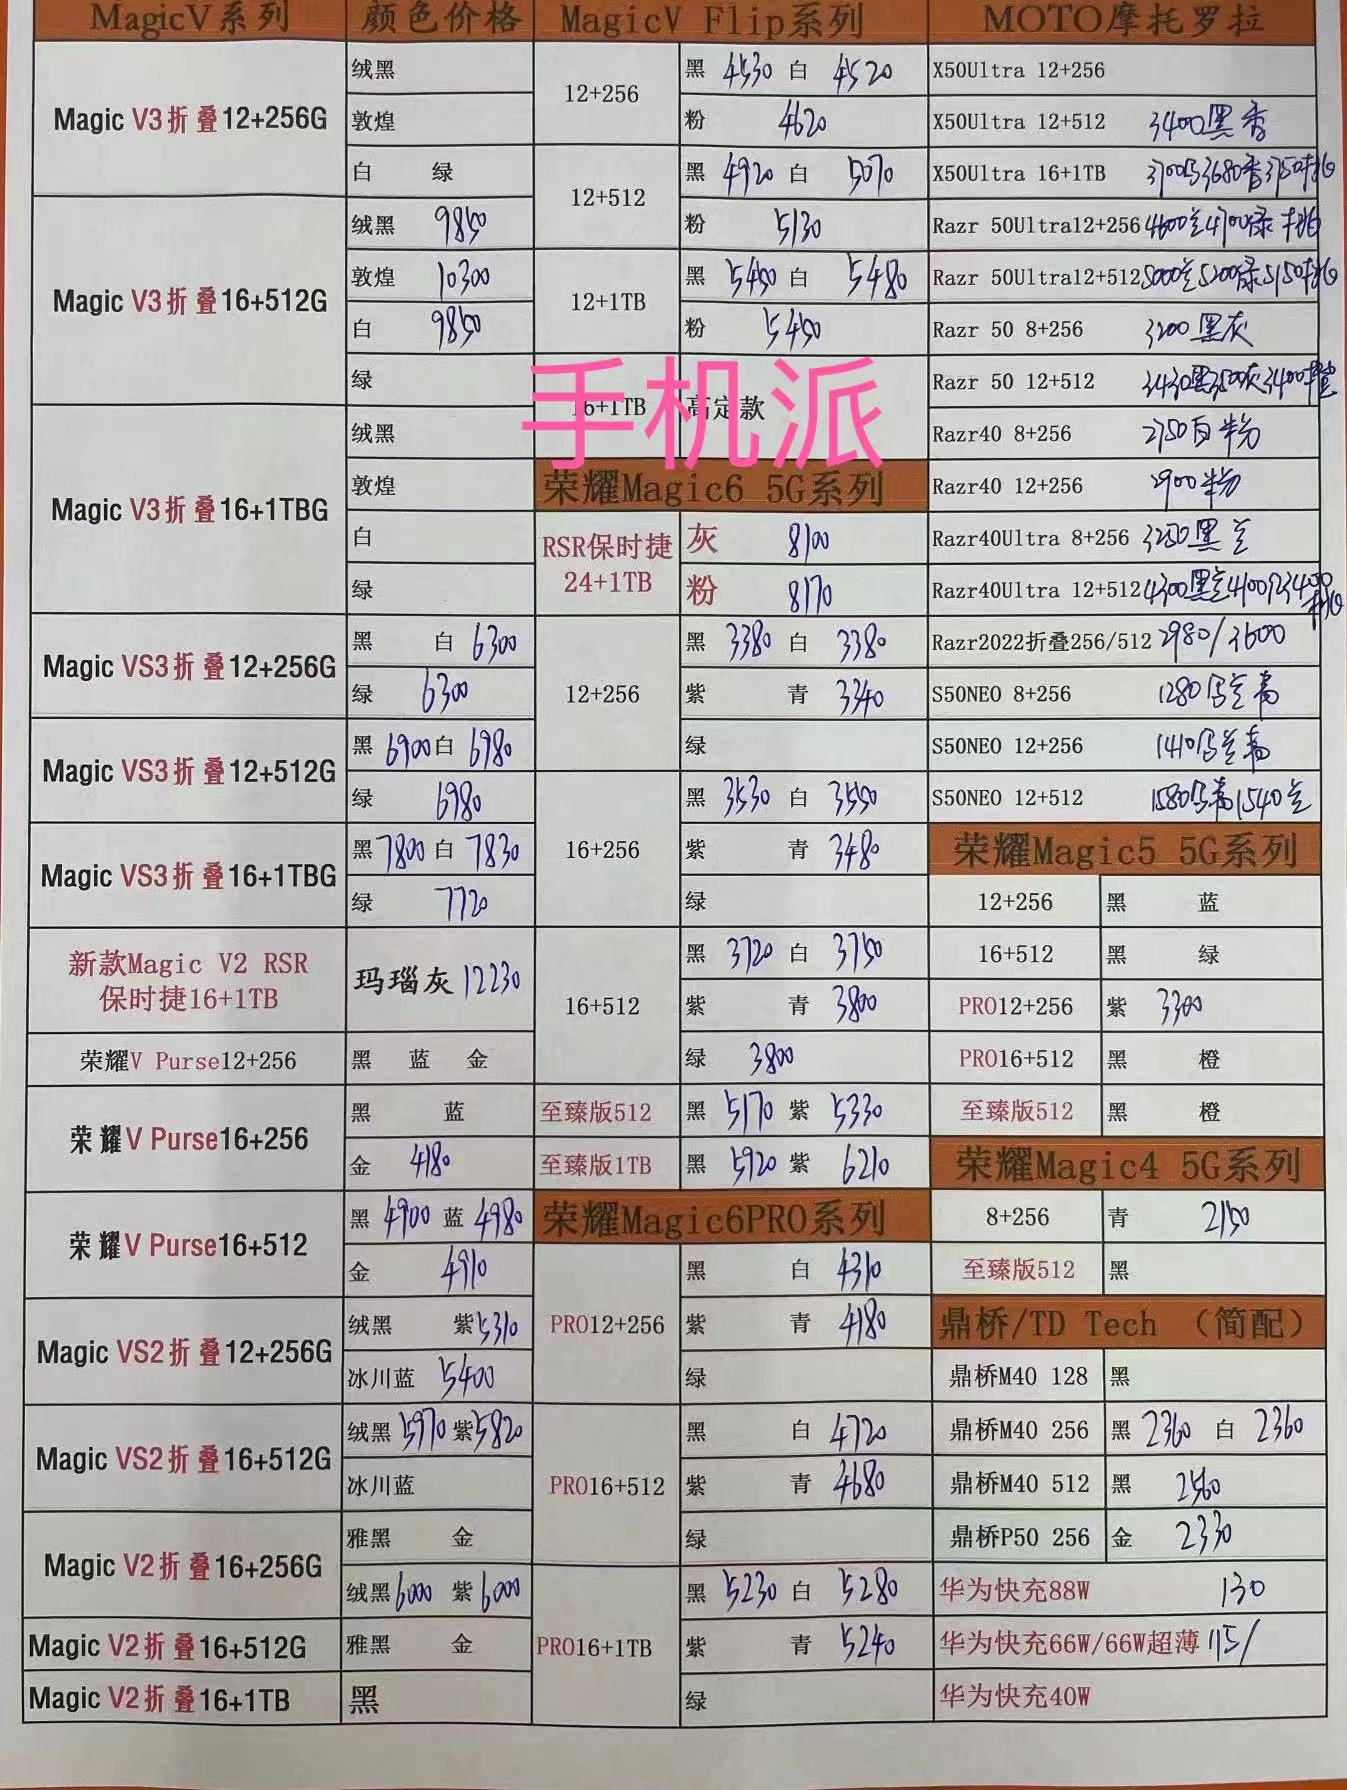 MagicV系列 颜色价格
Magic V3折叠12+256G 绒黑
敦煌
白 绿
Magic V3折叠16+512G 绒黑 9850
敦煌 10300
白 9850
绿
Magic V3折叠16+1TBG 绒黑
敦煌
白
绿
Magic VS3折叠12+256G 黑 白 6300
绿 6300
Magic VS3折叠12+512G 黑 6900 白 6980
绿 6980
Magic VS3折叠16+1TBG 黑 7800 白 7830
绿 7720
新款Magic V2 RSR
保时捷16+1TB
玛瑙灰 12230
荣耀V Purse12+256 黑 蓝 金
荣耀V Purse16+256 黑 蓝
金 4180
荣耀V Purse16+512 黑 4900 蓝 4980
金 4910
Magic VS2折叠12+256G 绒黑 紫 5310
冰川蓝 5400
Magic VS2折叠16+512G 绒黑 5970 紫 5820
冰川蓝
Magic V2折叠16+256G 雅黑 金
绒黑 6000 紫 6000
Magic V2折叠16+512G 雅黑 金
Magic V2折叠16+1TB 黑
MagicV Flip系列
12+256 黑 4530 白 4520
粉 4620
12+512 黑 4920 白 5070
粉 5130
12+1TB 黑 5450 白 5480
粉 5450
16+1TB 高定款
手机派
荣耀Magic6 5G系列
RSR保时捷
24+1TB
灰 8100
粉 8170
12+256 黑 3380 白 3380
紫 青 3340
绿
16+256 黑 3530 白 3550
紫 青 3480
绿
16+512 黑 3720 白 3750
紫 青 3800
绿 3800
至臻版512 黑 5170 紫 5330
至臻版1TB 黑 5920 紫 6210
荣耀Magic6PRO系列
PRO12+256 黑 白 4310
紫 青 4180
绿
PRO16+512 黑 白 4720
紫 青 4680
绿
PRO16+1TB 黑 5230 白 5280
紫 青 5240
绿
MOTO摩托罗拉
X50Ultra 12+256
X50Ultra 12+512 3400黑杳
X50Ultra 16+1TB
Razr 50Ultra12+256 4600兰4700绿
Razr 50Ultra12+512 5000兰5200绿5150
Razr 50 8+256 3200黑灰
Razr 50 12+512
Razr40 8+256 2750白粉
Razr40 12+256 2900粉
Razr40Ultra 8+256 黑兰
Razr40Ultra 12+512 4300黑兰
Razr2022折叠256/512 2980/3600
S50NEO 8+256 1280
S50NEO 12+256 1410
S50NEO 12+512 1580 1540兰
荣耀Magic5 5G系列
12+256 黑 蓝
16+512 黑 绿
PRO12+256 紫 3300
PRO16+512 黑 橙
至臻版512 黑 橙
荣耀Magic4 5G系列
8+256 青 2150
至臻版512 黑
鼎桥/TD Tech （简配）
鼎桥M40 128 黑
鼎桥M40 256 黑 2360 白 2360
鼎桥M40 512 黑 2560
鼎桥P50 256 金 2330
华为快充88W 130
华为快充66W/66W超薄 115/
华为快充40W